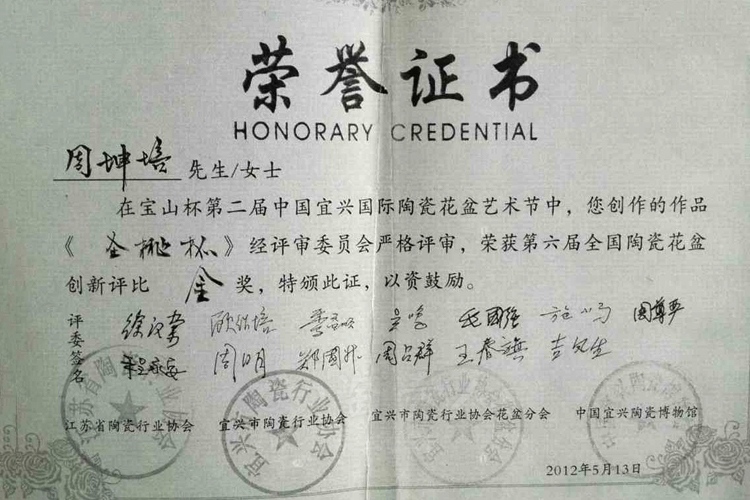 荣誉证书
HONORARY CREDENTIAL
周坤培 先生/女士
在宝山杯第二届中国宜兴国际陶瓷花盆艺术节中，您创作的作品
《圣桃杯》经评审委员会严格评审，荣获第六届全国陶瓷花盆
创新评比 金 奖，特颁此证，以资鼓励。
评委签名
周尊严
周明 郑国 周吕群 王春旗
江苏省陶瓷行业协会 宜兴市陶瓷行业协会 宜兴市陶瓷行业协会花盆分会 中国宜兴陶瓷博物馆
2012年5月13日